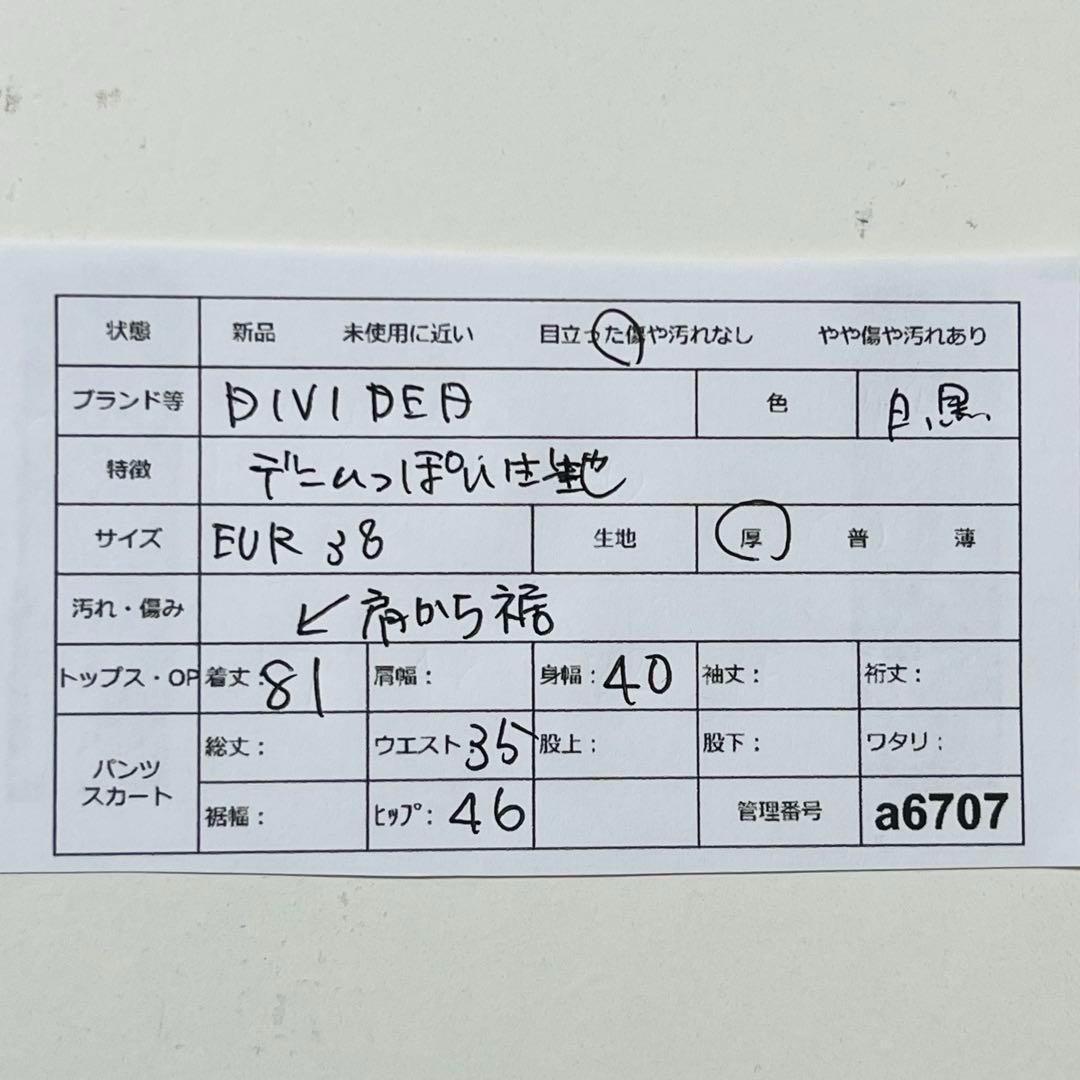 状態 新品 未使用に近い 目立った傷や汚れなし やや傷や汚れあり
ブランド等 DIVIDED 色 白,黒
特徴 デニムっぽい生地
サイズ EUR 38 生地 厚 普 薄
汚れ・傷み ↙肩から裾
トップス・OP 着丈:81 肩幅: 身幅:40 袖丈: 裄丈:
パンツ スカート 総丈: ウエスト:35 股上: 股下: ワタリ:
裾幅: ヒップ:46 管理番号 a6707